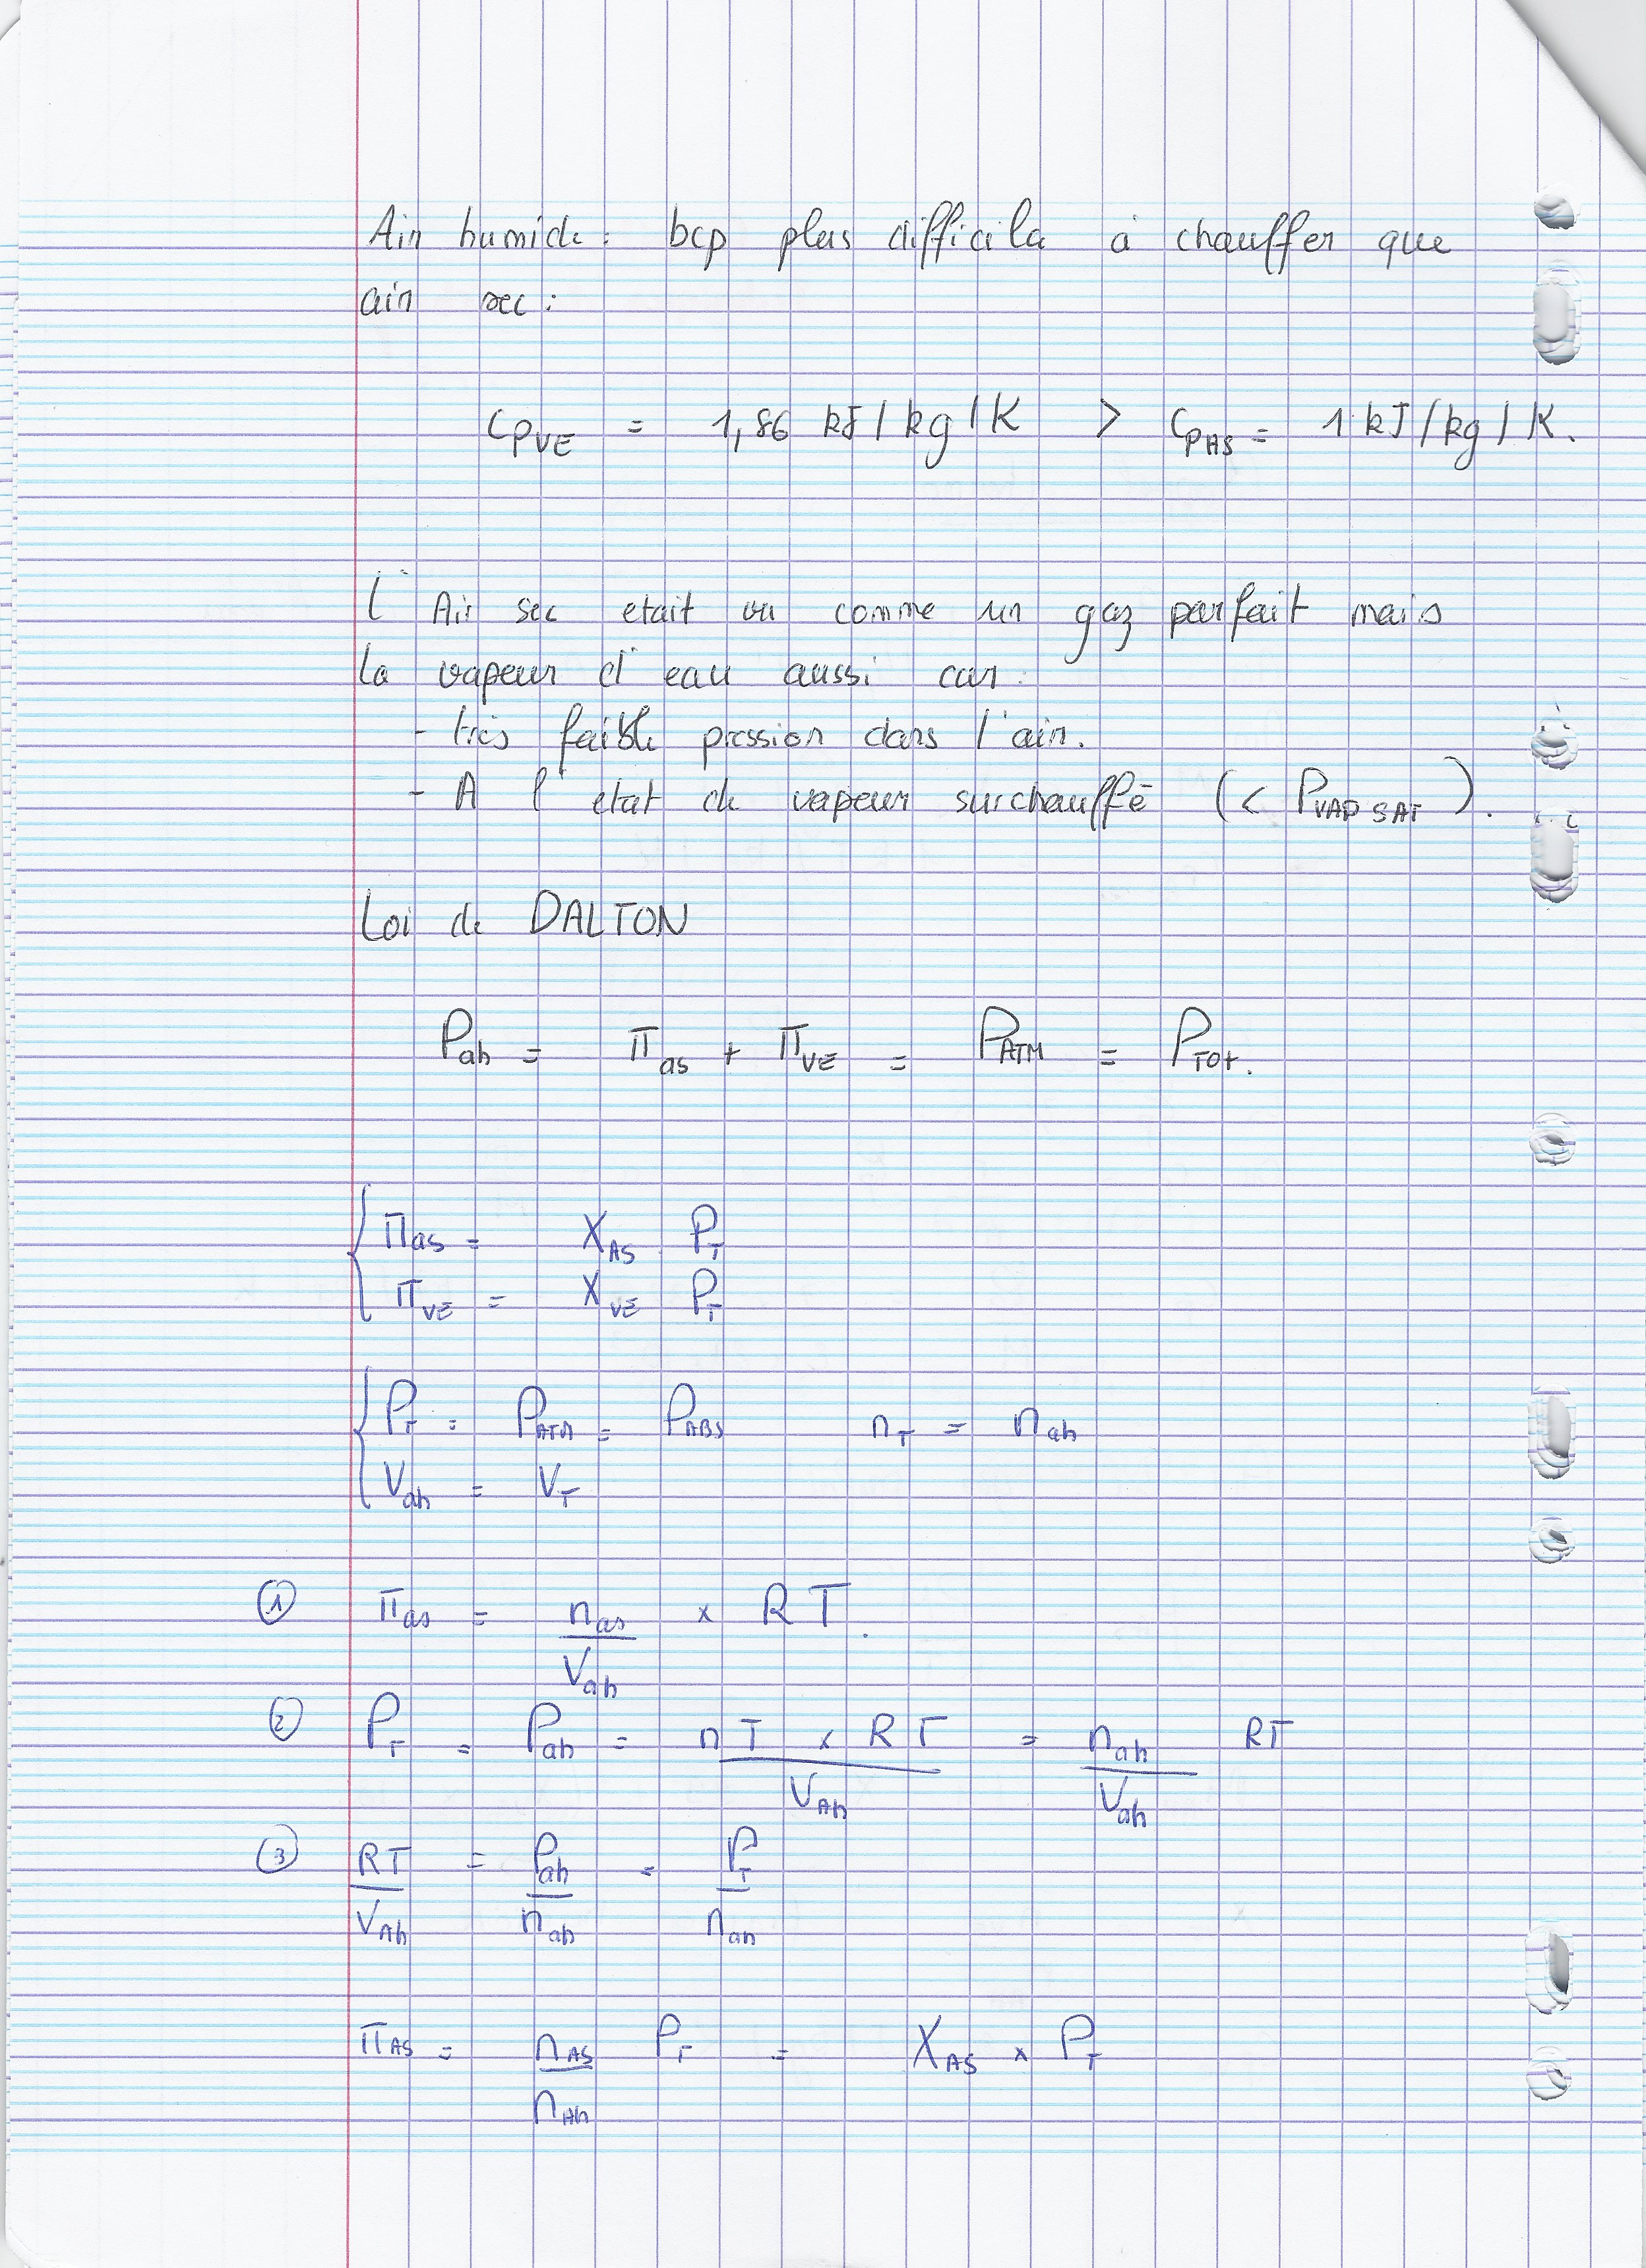 Air humide : bcp plus difficile à chauffer que
air sec :
CpVE = 1,86 kJ/kg/K > CpAS = 1 kJ/kg/K.
l' Air sec etait vu comme un gaz parfait mais
la vapeur d'eau aussi car :
- très faible pression dans l'air.
- A l'etat de vapeur surchauffé (< PVAP SAT).
Loi de DALTON
Pah = πas + πVE = PATM = PTOt.
πas = XAS PT
πVE = XVE PT
PT = PATM = PABS nT = nah
Vah = VT
① πas = nas/Vah × RT.
② PT = Pah = nT × RT/VAh = nah/Vah RT
③ RT/VAh = Pah/nah = PT/nah
πAS = nAS/nAh PT = XAS × PT